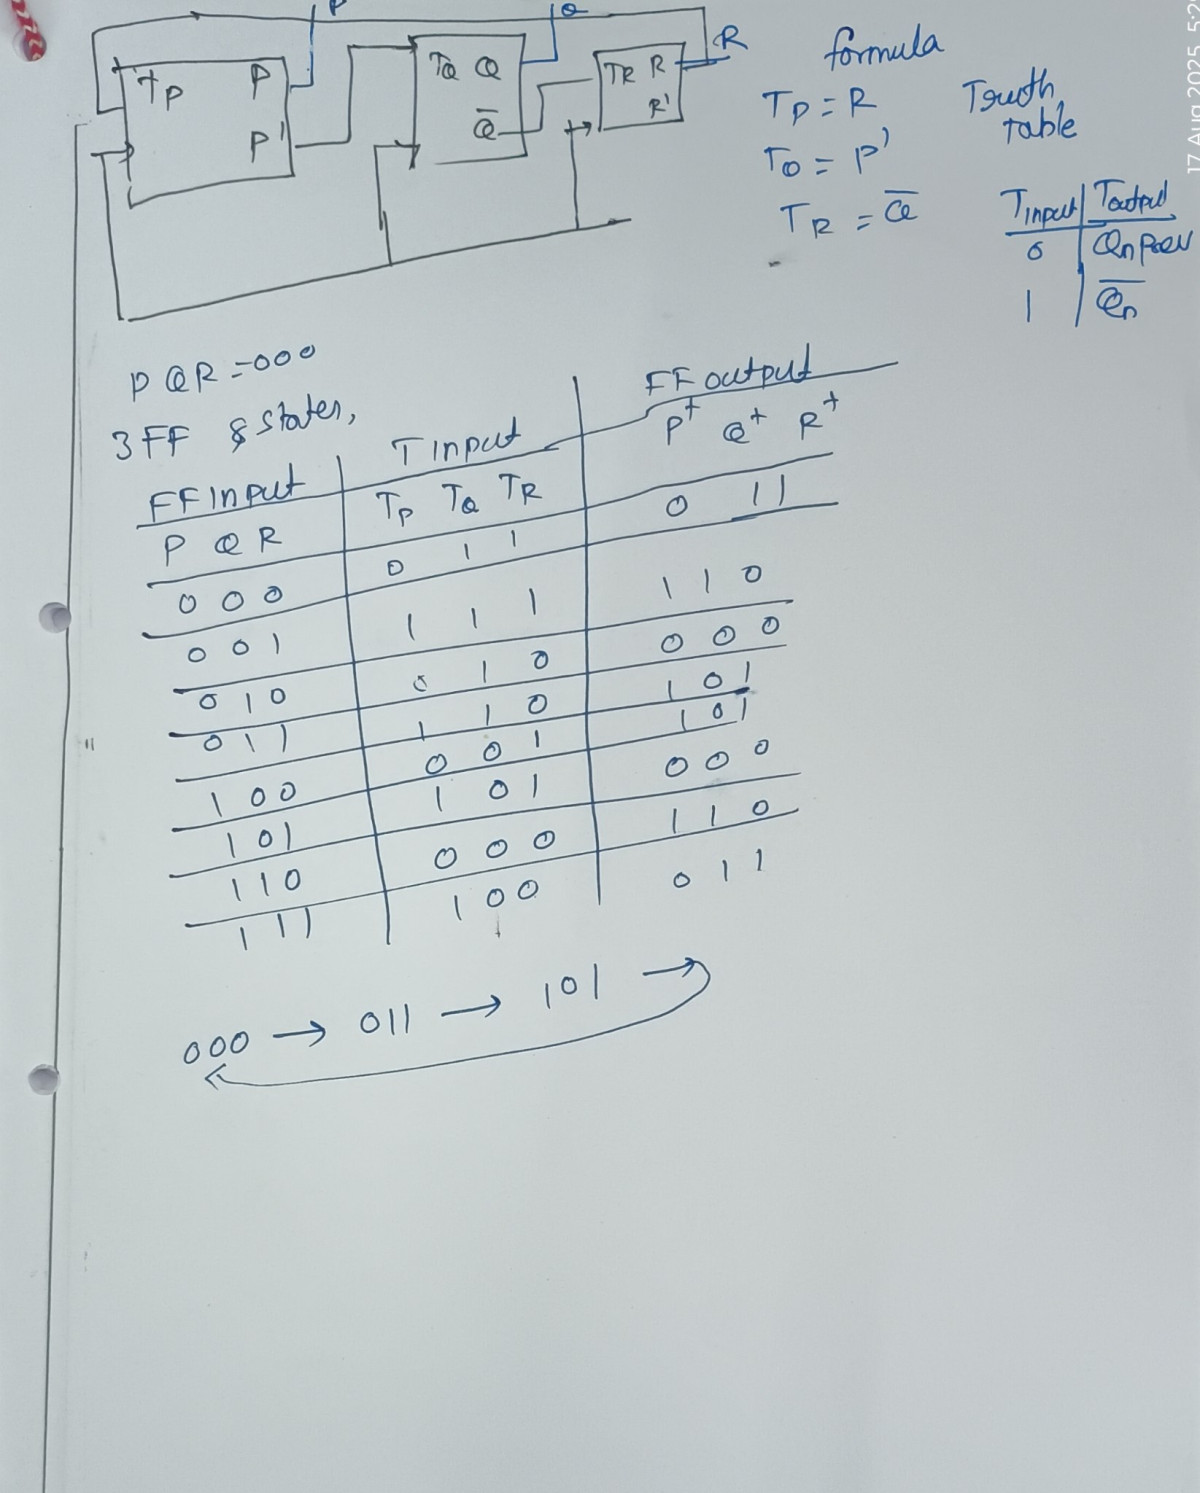 P
Q
R
TP P
P'
TQ Q
Q̅
TR R
R'
formula
TP = R
TQ = P'
TR = Q̅
Truth
table
Tinput Toutput
0 Qn prev
1 Q̅n
17 Aug 2025, 5:2
PQR = 000
3 FF 8 states,
FF Input T input FF output
P Q R TP TQ TR P+ Q+ R+
0 0 0 0 1 1 0 1 1
0 0 1 1 1 1 1 1 0
0 1 0 0 1 0 0 0 0
0 1 1 1 1 0 1 0 1
1 0 0 0 0 1 1 0 1
1 0 1 1 0 1 0 0 0
1 1 0 0 0 0 1 1 0
1 1 1 1 0 0 0 1 1
000 → 011 → 101 →